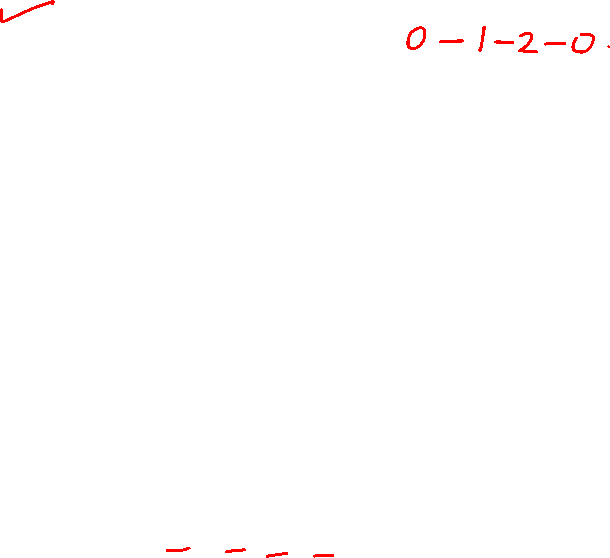 0 - 1 - 2 - 0 .
- - - -